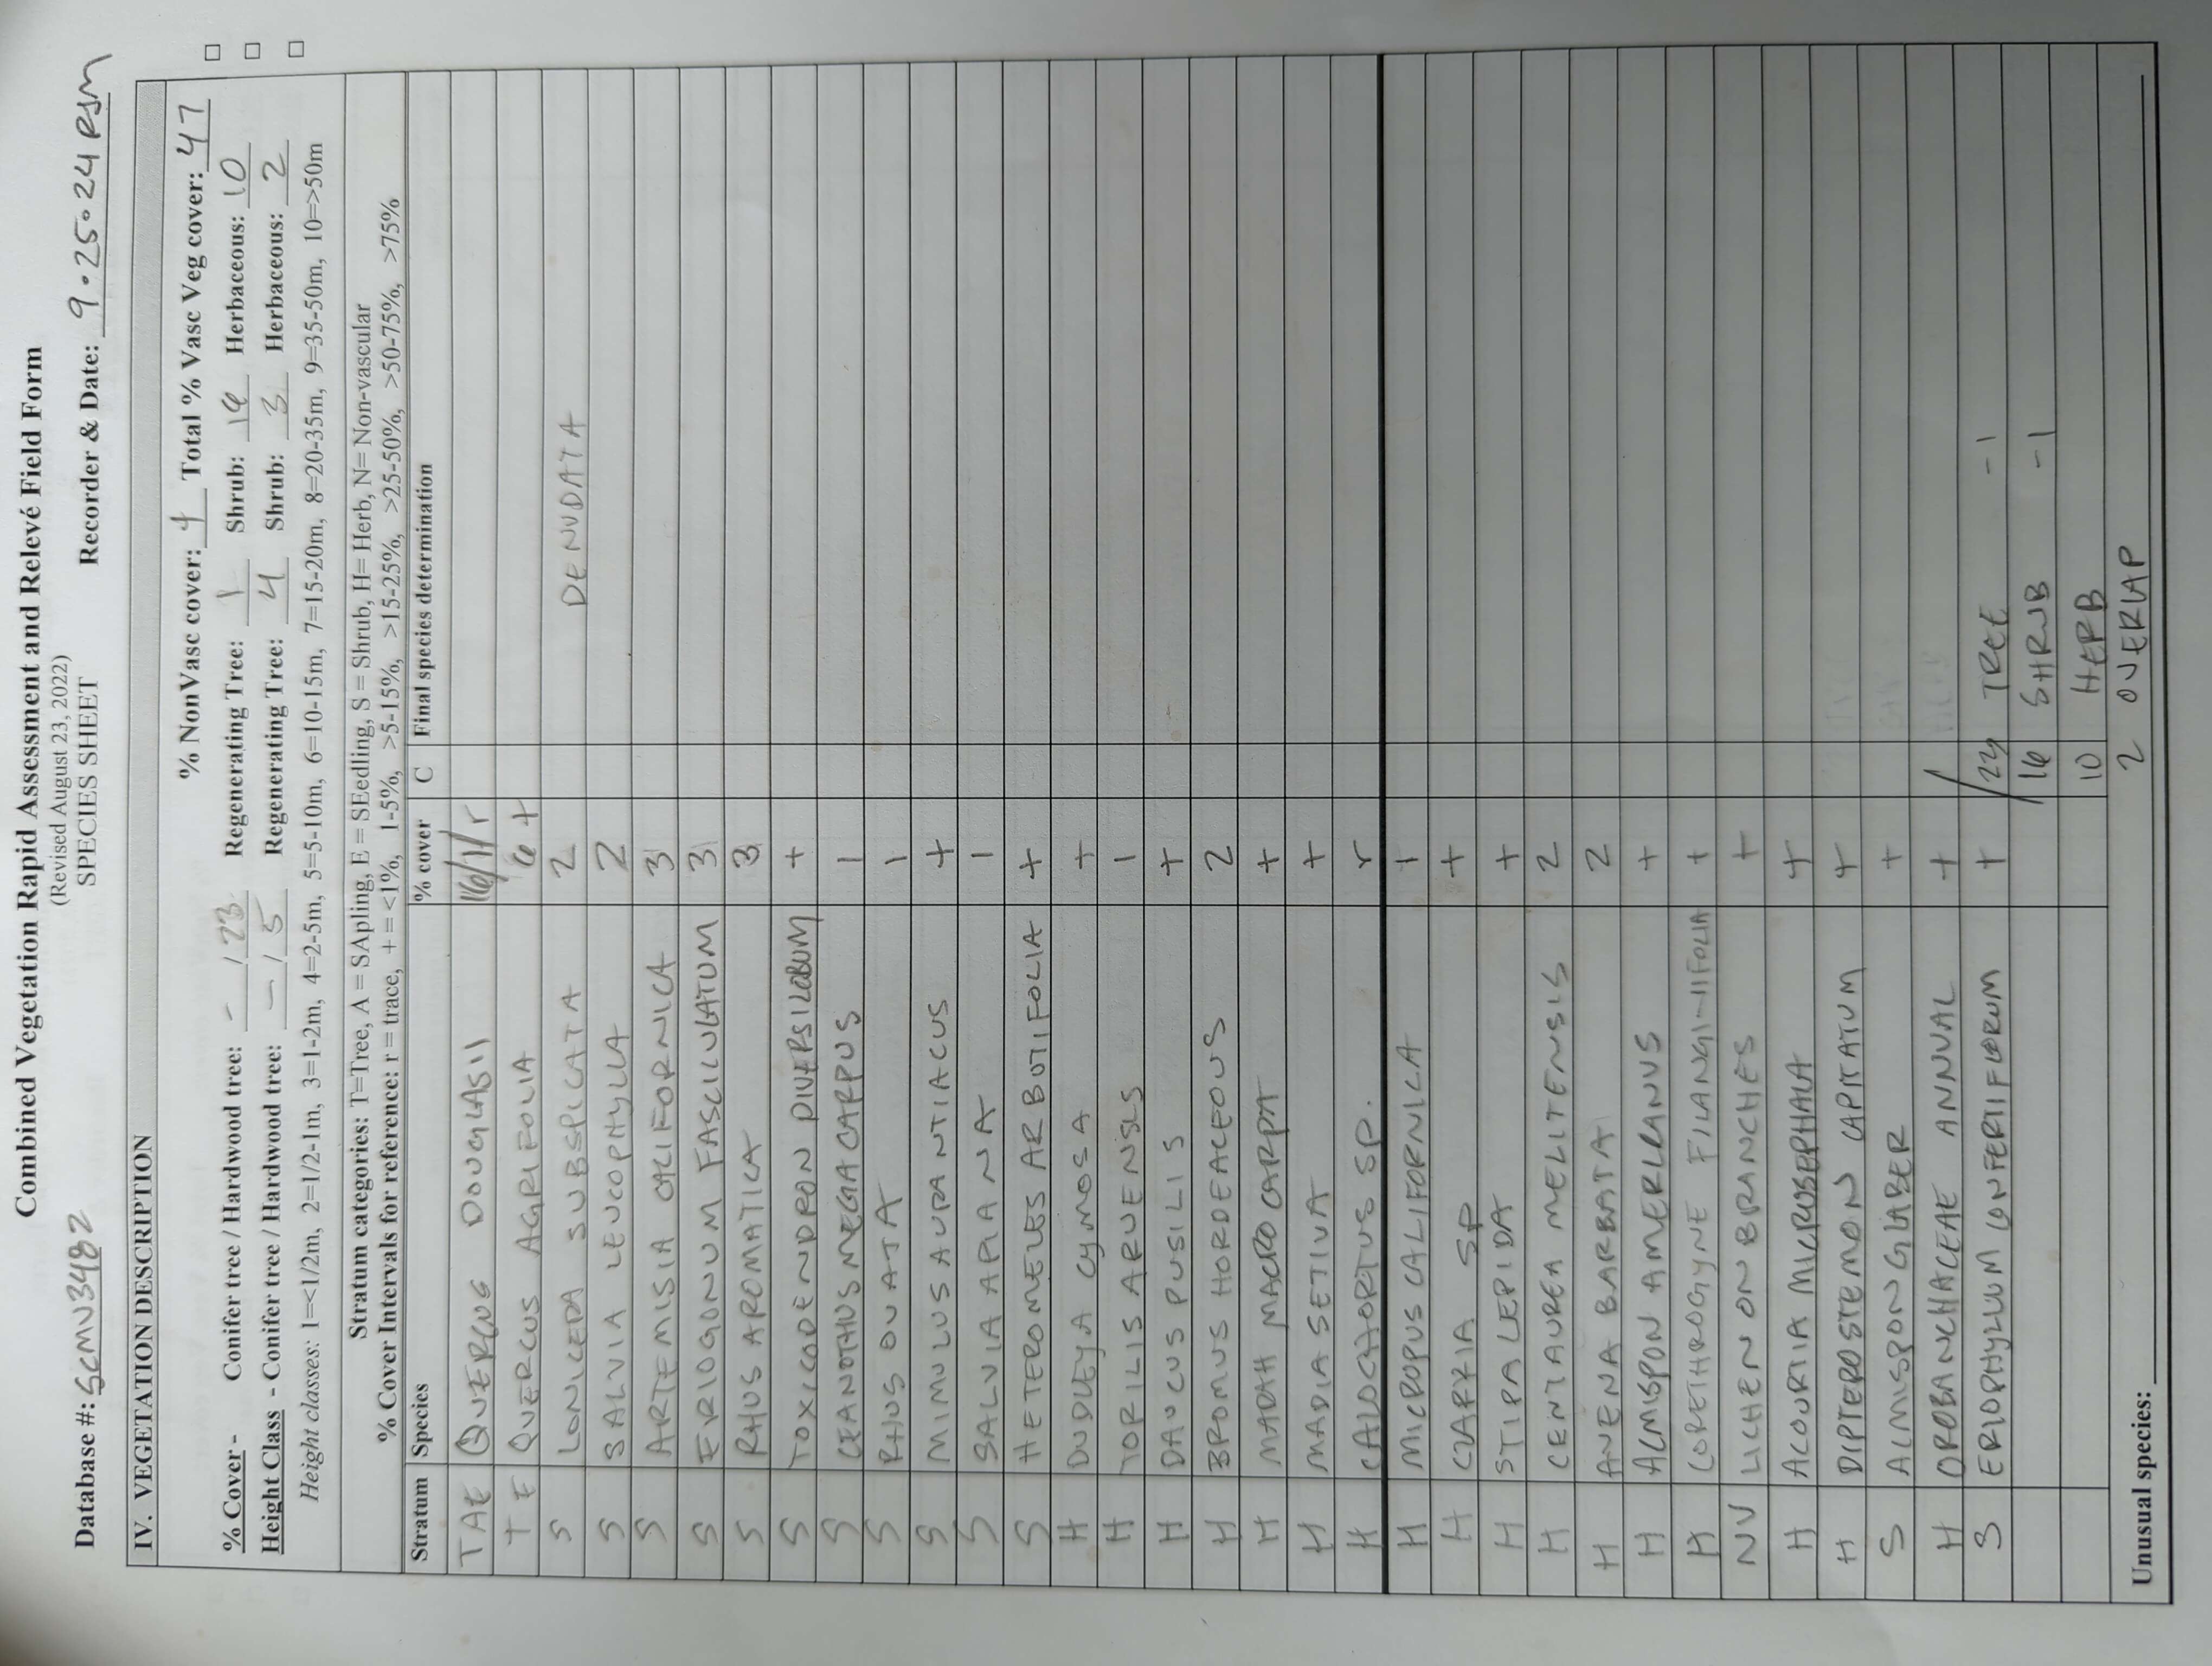 Combined Vegetation Rapid Assessment and Relevé Field Form
(Revised August 23, 2022)
SPECIES SHEET
Database #: SCMV3482 Recorder & Date: 9.25.24 RJM
IV. VEGETATION DESCRIPTION
% NonVasc cover: + Total % Vasc Veg cover: 47
% Cover - Conifer tree / Hardwood tree: - / 23 Regenerating Tree: 1 Shrub: 14 Herbaceous: 10
Height Class - Conifer tree / Hardwood tree: - / 5 Regenerating Tree: 4 Shrub: 3 Herbaceous: 2
Height classes: 1=<1/2m, 2=1/2-1m, 3=1-2m, 4=2-5m, 5=5-10m, 6=10-15m, 7=15-20m, 8=20-35m, 9=35-50m, 10=>50m
Stratum categories: T=Tree, A = SApling, E = SEedling, S = Shrub, H= Herb, N= Non-vascular
% Cover Intervals for reference: r = trace, + = <1%, 1-5%, >5-15%, >15-25%, >25-50%, >50-75%, >75%
Stratum Species % cover C Final species determination
TAE QUERCUS DOUGLASII 16/1/r
TE QUERCUS AGRIFOLIA 6 +
S LONICERA SUBSPICATA 2 DENUDATA
S SALVIA LEUCOPHYLLA 2
S ARTEMISIA CALIFORNICA 3
S ERIOGONUM FASCICULATUM 3
S RHUS AROMATICA 3
S TOXICODENDRON DIVERSILOBUM +
S CEANOTHUS MEGACARPUS 1
S RHUS OVATA 1
S MIMULUS AURANTIACUS +
S SALVIA APIANA 1
S HETEROMELES ARBUTIFOLIA +
H DUDLEYA CYMOSA +
H TORILIS ARVENSIS 1
H DAUCUS PUSILIS +
H BROMUS HORDEACEOUS 2
H MADAH MACROCARPA +
H MADIA SETIVA +
H CALOCHORTUS SP. r
H MICROPUS CALIFORNICA 1
H CLARKIA SP +
H STIPA LEPIDA +
H CENTAUREA MELITENSIS 2
H AVENA BARBATA 2
H ACMISPON AMERICANUS +
H CORETHROGYNE FILANGINIIFOLIA +
NV LICHEN ON BRANCHES +
H ACOURTIA MICROSEPHALA +
H DIPTEROSTEMON CAPITATUM +
S ACMISPON GLABER +
H OROBANCHACEAE ANNUAL +
S ERIOPHYLLUM CONFERTIFLORUM + 24 TREE -1
16 SHRUB -1
10 HERB
2 OVERLAP
Unusual species: